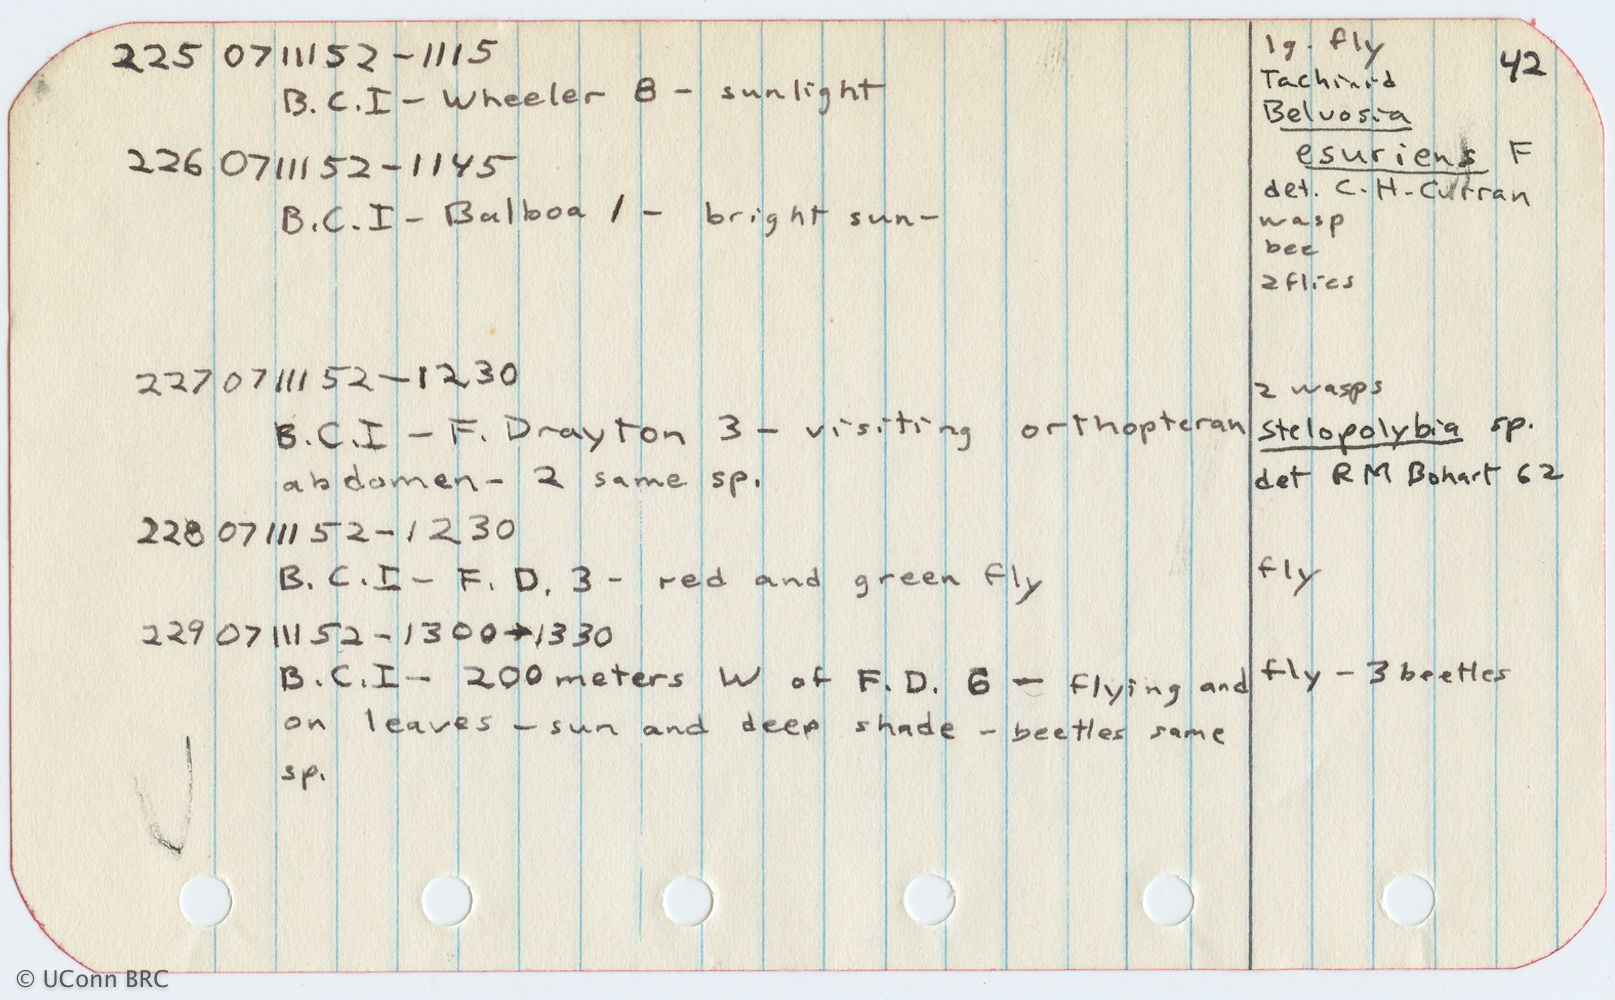 42
225 07111152-1115 lg. fly
B.C.I - Wheeler 8 - sunlight Tachinid
Belvosia
esuriens F
226 07111152-1145 det. C.H. Curran
B.C.I - Balboa 1 - bright sun- wasp
bee
2 flies
227 07111152-1230 2 wasps
B.C.I - F. Drayton 3 - visiting orthopteran Stelopolybia sp.
abdomen- 2 same sp. det RM Bohart 62
228 07111152-1230
B.C.I - F.D. 3 - red and green fly fly
229 07111152-1300→1330
B.C.I - 200 meters W of F.D. 6 - flying and fly - 3 beetles
on leaves - sun and deep shade - beetles same
sp.
© UConn BRC